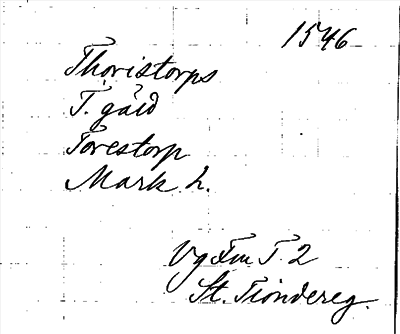 1546
Thoristorps
T. gård
Torestorp
Mark h.
Vg Fm T. 2
St. Tiondereg.